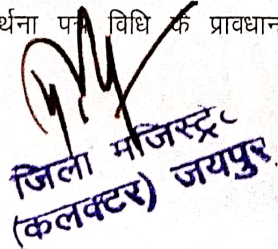 र्थना पत्र विधि के प्रावधान
जिला मजिस्ट्रेट
(कलक्टर) जयपुर